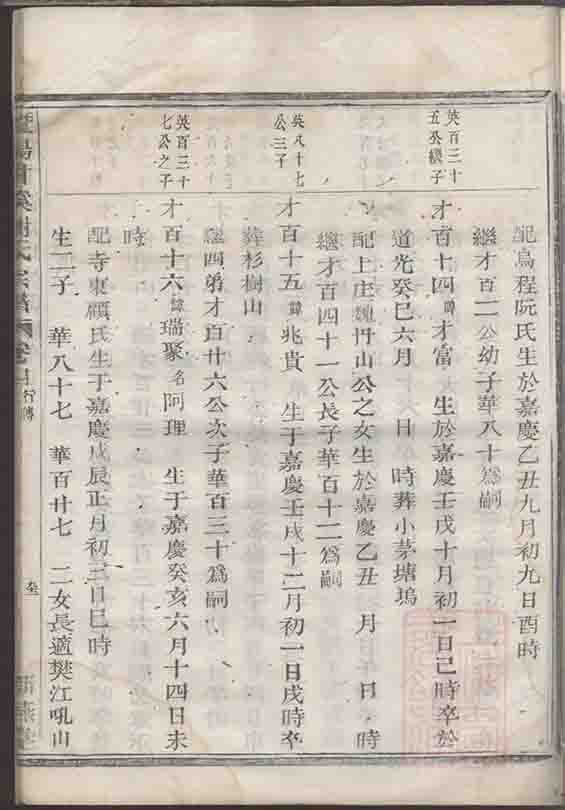 配烏程阮氏生於嘉慶乙丑九月初九日酉時
繼才百二公幼子華八十爲嗣
英百二十五公繼子
才百十四諱才富 生於嘉慶壬戌十月初一日己時卒於
道光癸巳六月 十 日 時葬小茅塘塢
配上庄魏丹山公之女生於嘉慶乙丑 月 日 時
繼才百四十一公長子華百十二爲嗣
英八十七公三子
才百十五諱兆貴 生于嘉慶壬戌十二月初一日戌時卒
葬杉樹山
繼四弟才百廿六公次子華百三十爲嗣
英百三十七公之子
才百十六諱瑞聚名阿理 生于嘉慶癸亥六月十四日未
時
配寺東顧氏生于嘉慶戊辰正月初三日巳時
生二子 華八十七 華百廿七 二女長適樊江吼山
謝氏宗譜 卷 行傳